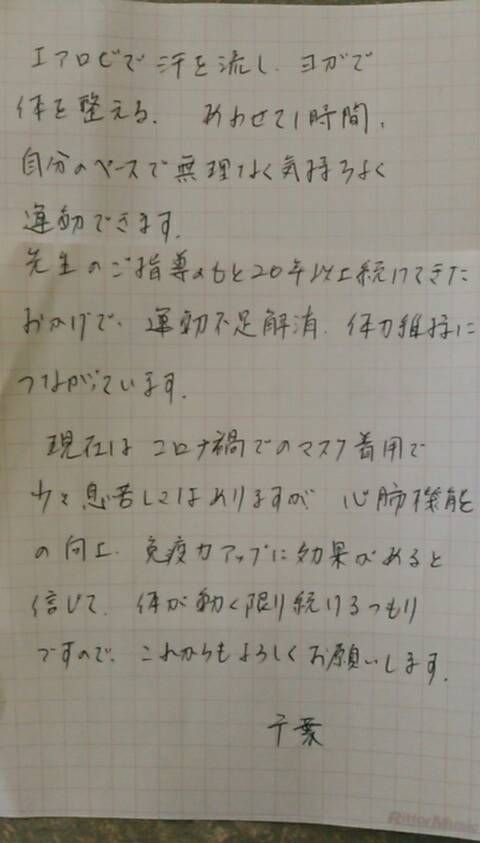 エアロビで汗を流し、ヨガで
体を整える。 あわせて1時間、
自分のペースで無理なく気持ちよく
運動できます。
先生のご指導のもと20年以上続けてきた
おかげで、運動不足解消、体力維持に
つながっています。
現在はコロナ禍でのマスク着用で
少々息苦しくはありますが 心肺機能
の向上、免疫力アップに効果があると
信じて、体が動く限り続けるつもり
ですので、これからもよろしくお願いします。
千葉
RittorMusic